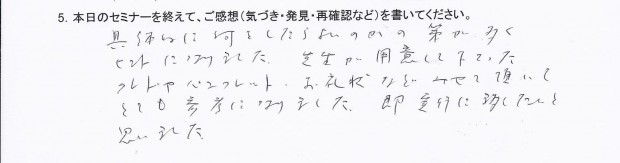 5. 本日のセミナーを終えて、ご感想（気づき・発見・再確認など）を書いてください。
具体的に何をしたらよいのかの 多く
ヒントになりました。先生が用意して下さった
パンフレット、お礼状などみせて頂いて
とても参考になりました。即実行に移したいと
思いました